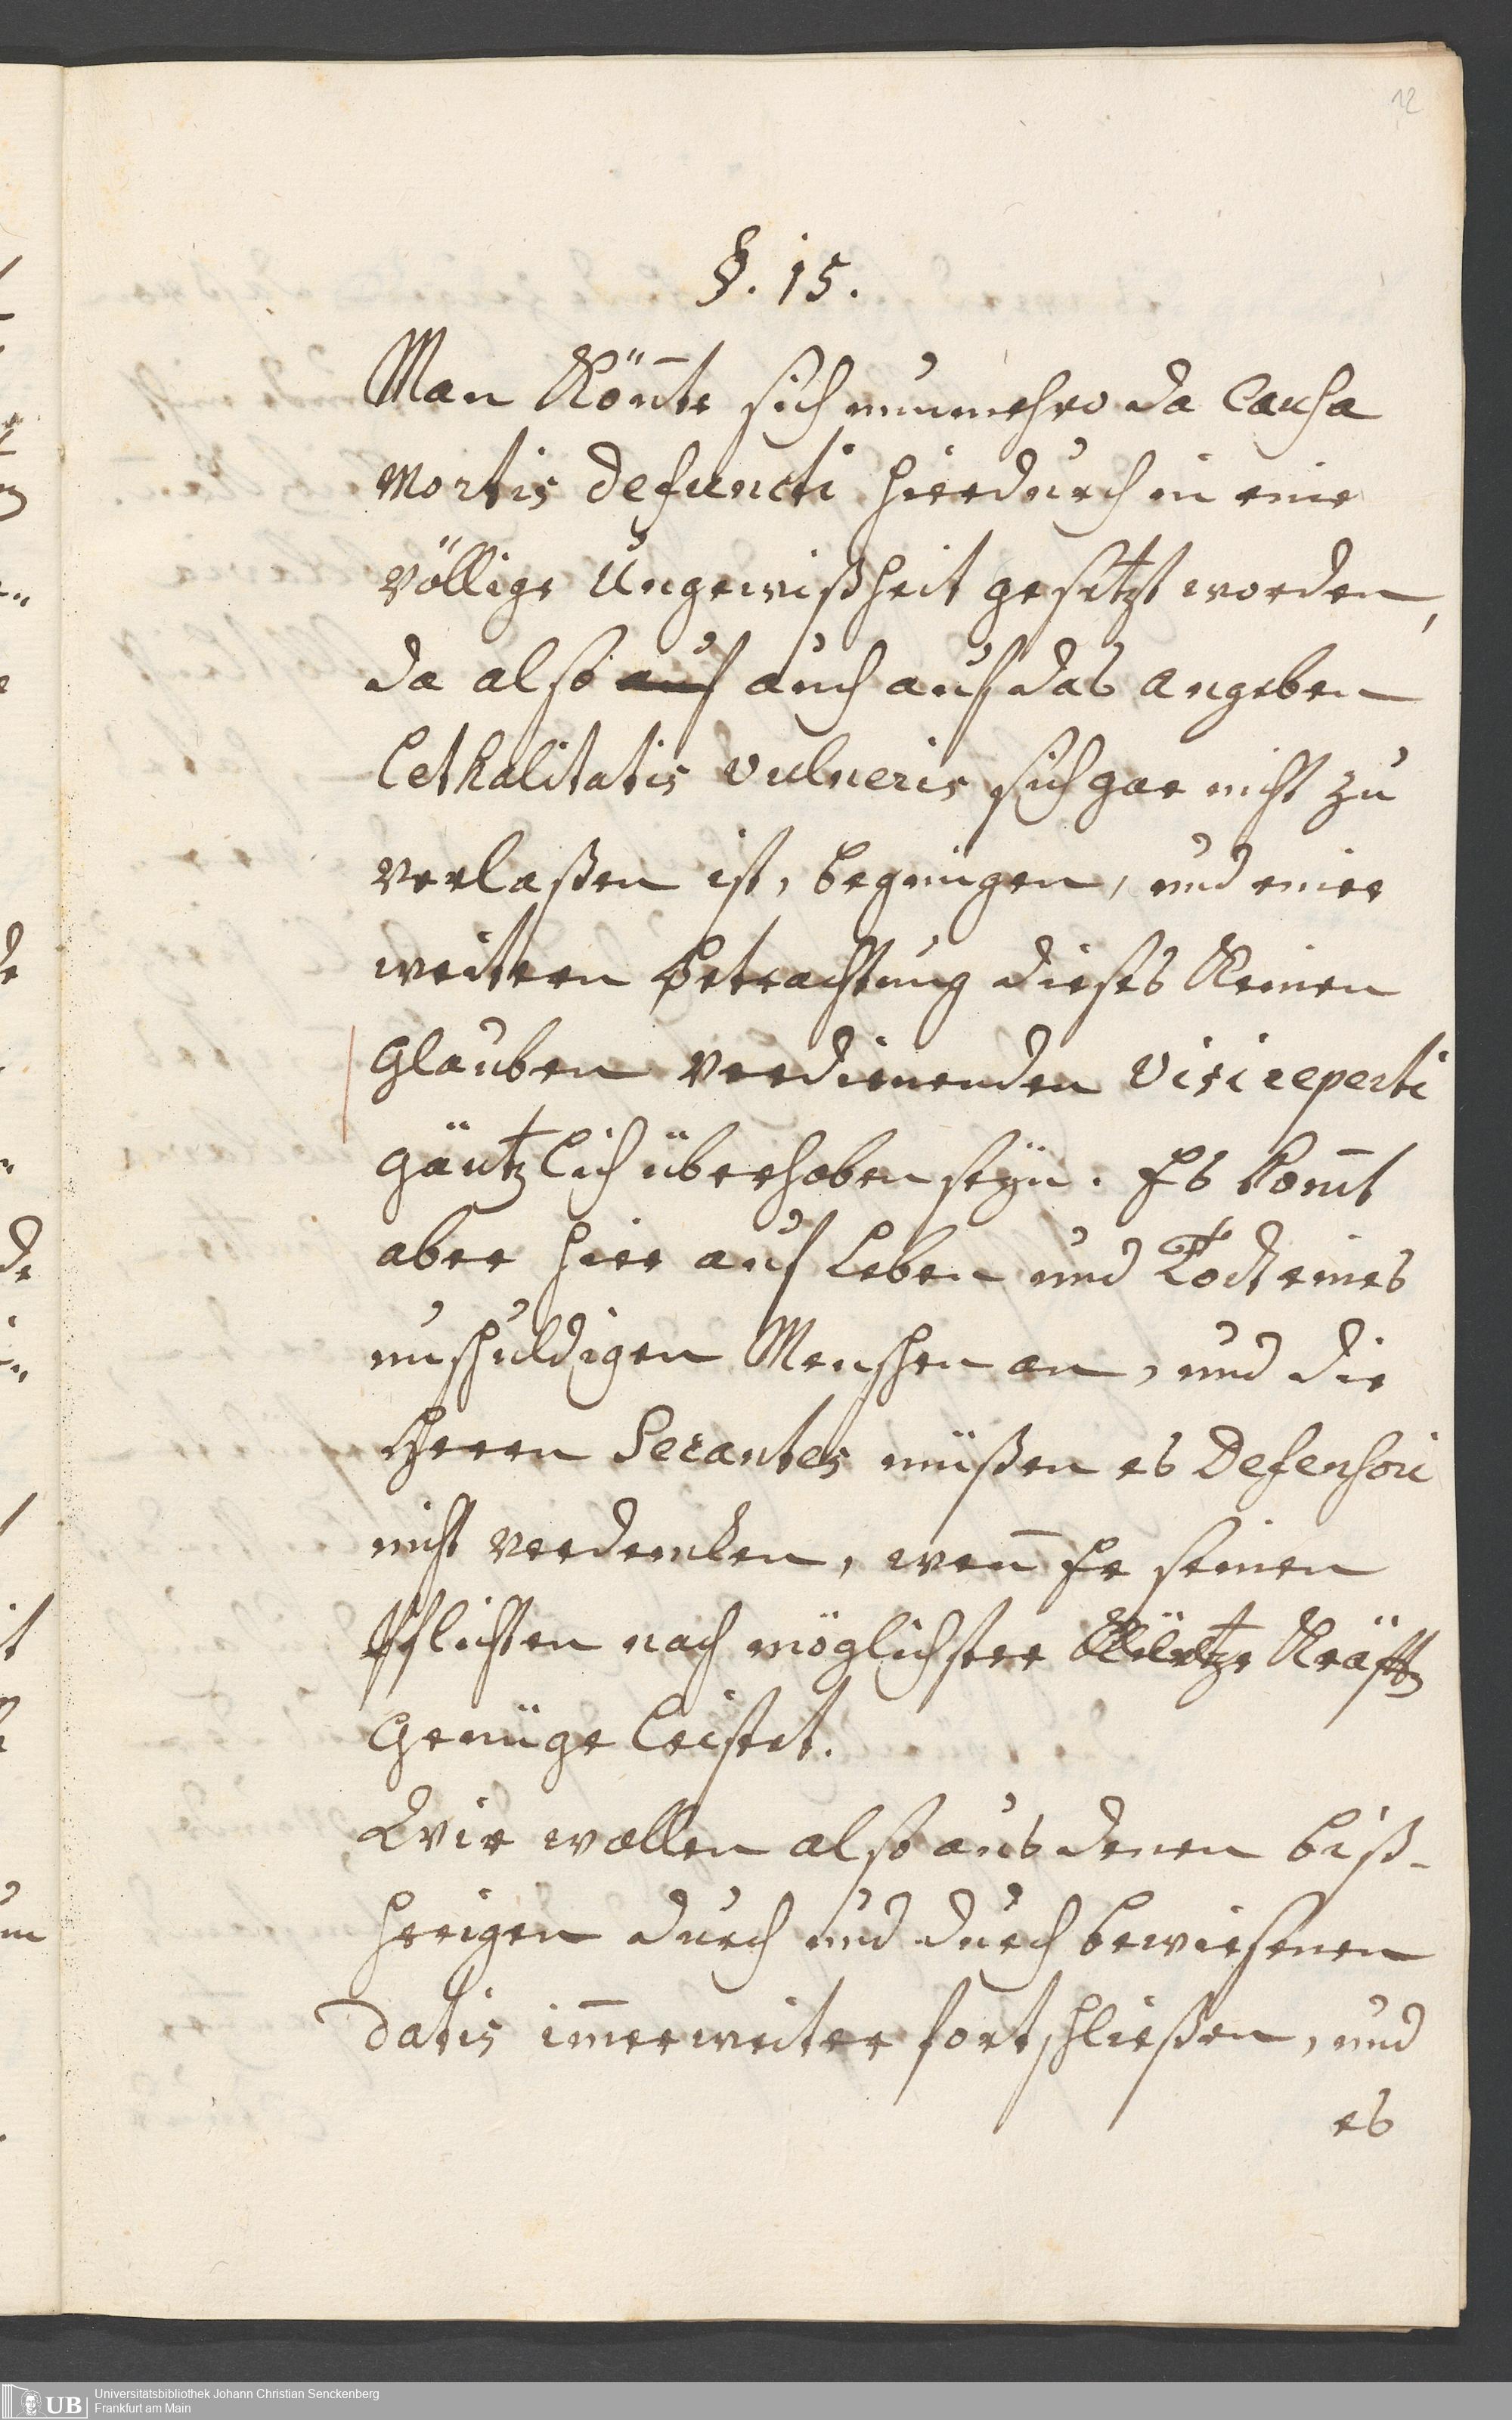 12
§. 15.
Man Kön̄te sich nunmehro da Causa
mortis defuncti hierdurch in eine
völlige Ungewißheit gesetzt worden,
da also auf auch auf das angeben
Lethalitatis vulneris sich gar nicht zu
verlaßen ist, begnügen, und einer
weitern Betrachtung dieses Keinen
Glauben verdienenden Visi reperti
gäntzlich überhoben seÿn. Es Kom̄t
aber hier auf Leben und Todt eines
unschuldigen Menschen an, und die
Herren Secantes müßen es Defensori
nicht verdencken, wen̄ Er seinen
Pflichten nach möglichster Kürtze Kräfft
Genüge leistet.
Wir wollen also aus denen biß-
herigen durch und durch bewiesenen
Datis im̄er weiter fort schließen, und
es
UB Universitätsbibliothek Johann Christian Senckenberg
Frankfurt am Main